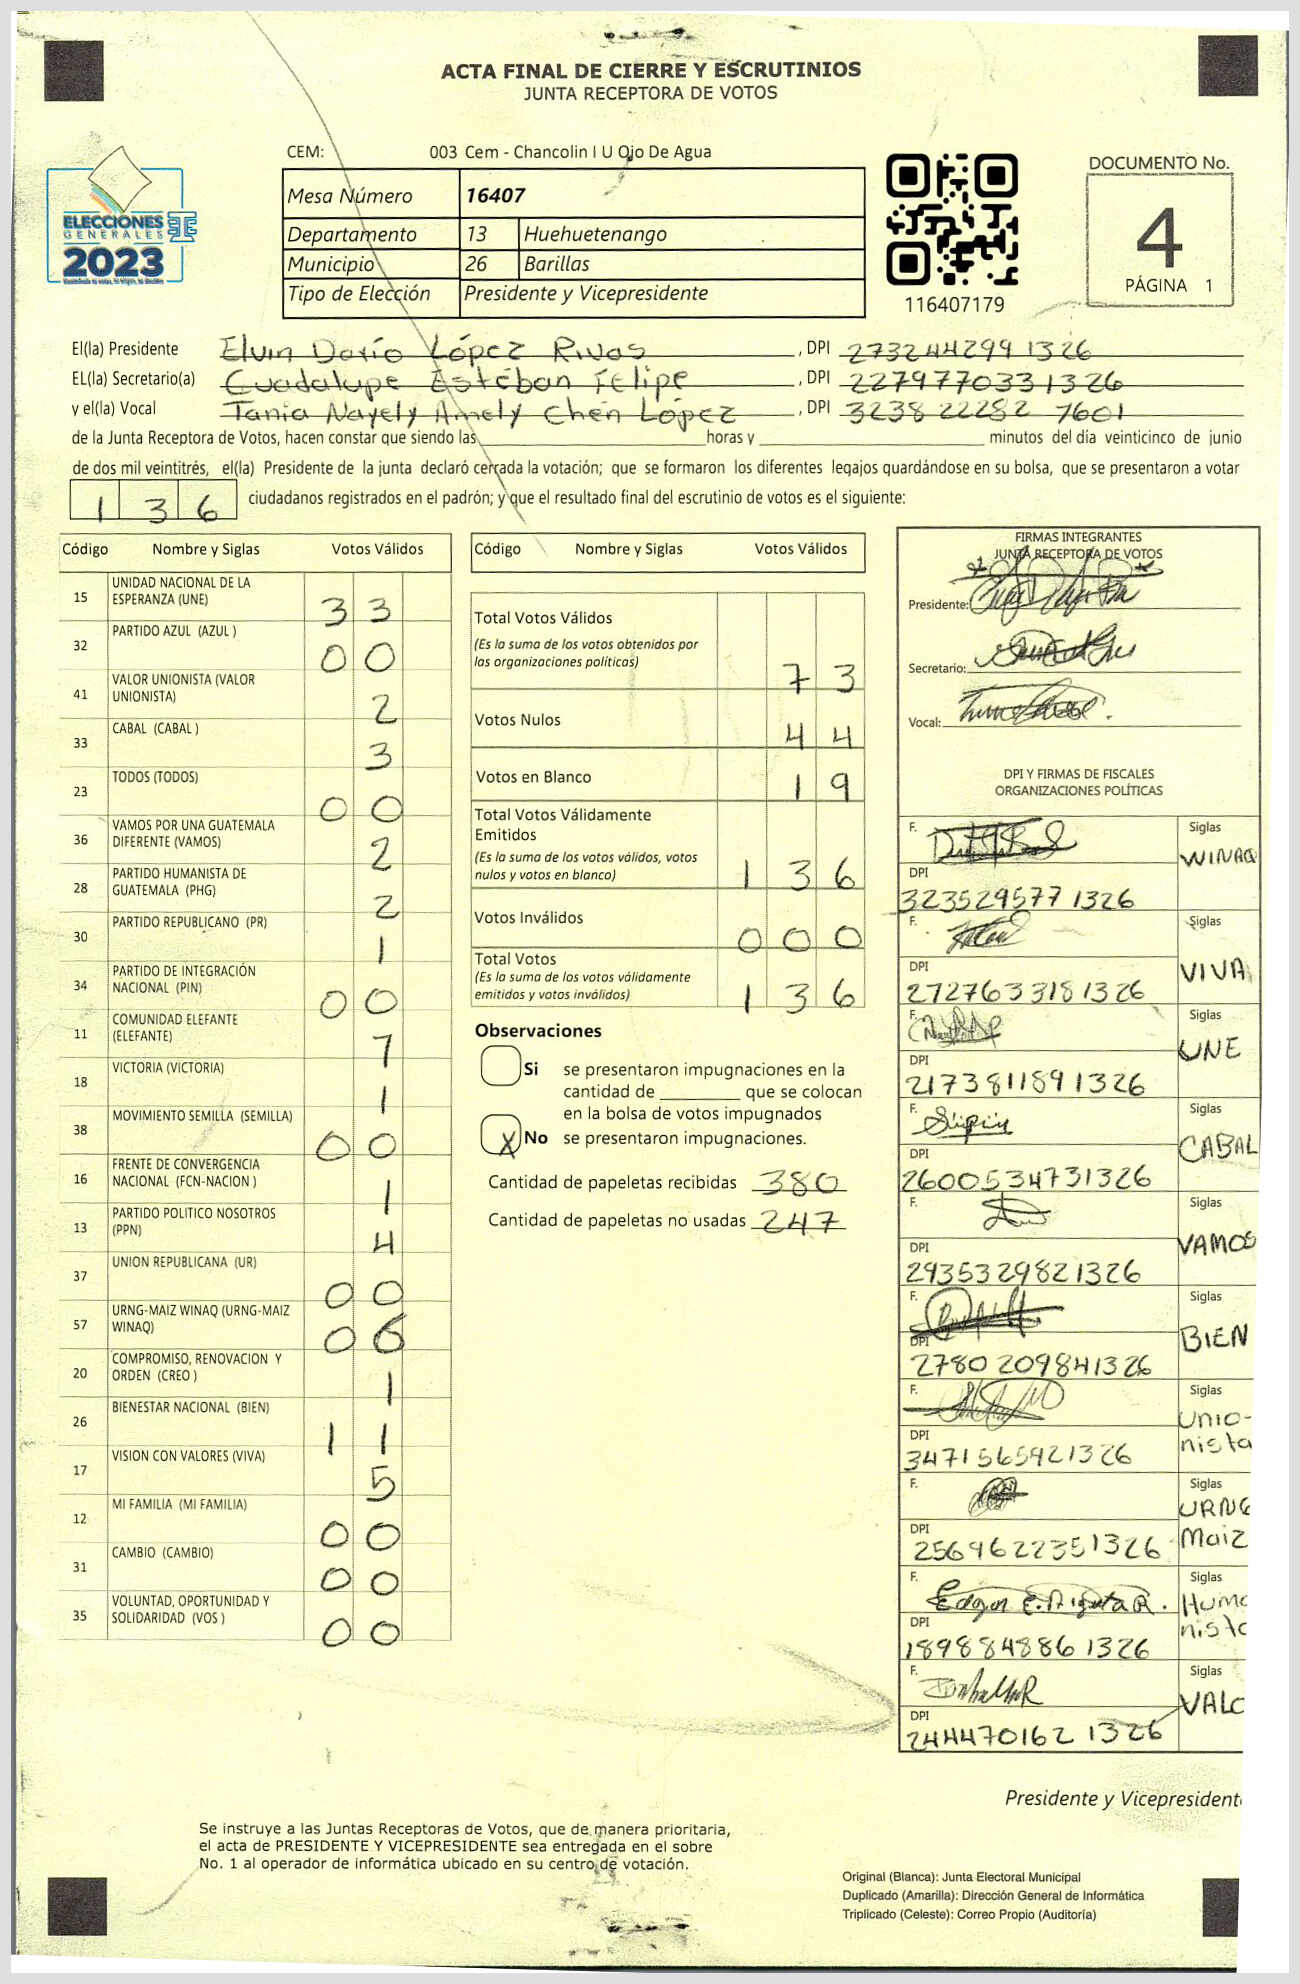 ACTA FINAL DE CIERRE Y ESCRUTINIOS
JUNTA RECEPTORA DE VOTOS
CEM: 003 Cem - Chancolin I U Ojo De Agua
ELECCIONES
GENERALES
2023
Mesa Número 16407
Departamento 13 Huehuetenango
Municipio 26 Barillas
Tipo de Elección Presidente y Vicepresidente
116407179
DOCUMENTO No.
4
PÁGINA 1
El(la) Presidente Elvin Darío López Rivas, DPI 273244299 1326
EL(la) Secretario(a) Guadalupe Estéban Felipe, DPI 2279770331326
y el(la) Vocal Tania Nayely Amely Chén López, DPI 3238 22282 7601
de la Junta Receptora de Votos, hacen constar que siendo las horas y minutos del día veinticinco de junio
de dos mil veintitrés, el(la) Presidente de la junta declaró cerrada la votación; que se formaron los diferentes legajos guardándose en su bolsa, que se presentaron a votar
1 3 6 ciudadanos registrados en el padrón; y que el resultado final del escrutinio de votos es el siguiente:
Código Nombre y Siglas Votos Válidos
15 UNIDAD NACIONAL DE LA ESPERANZA (UNE) 3 3
32 PARTIDO AZUL (AZUL ) 0 0
41 VALOR UNIONISTA (VALOR UNIONISTA) 2
33 CABAL (CABAL ) 3
23 TODOS (TODOS) 0 0
36 VAMOS POR UNA GUATEMALA DIFERENTE (VAMOS) 2
28 PARTIDO HUMANISTA DE GUATEMALA (PHG) 2
30 PARTIDO REPUBLICANO (PR) 1
34 PARTIDO DE INTEGRACIÓN NACIONAL (PIN) 0 0
11 COMUNIDAD ELEFANTE (ELEFANTE) 7
18 VICTORIA (VICTORIA) 1
38 MOVIMIENTO SEMILLA (SEMILLA) 0 0
16 FRENTE DE CONVERGENCIA NACIONAL (FCN-NACION ) 1
13 PARTIDO POLITICO NOSOTROS (PPN) 4
37 UNION REPUBLICANA (UR) 0 0
57 URNG-MAIZ WINAQ (URNG-MAIZ WINAQ) 0 6
20 COMPROMISO, RENOVACION Y ORDEN (CREO ) 1
26 BIENESTAR NACIONAL (BIEN) 1 1
17 VISION CON VALORES (VIVA) 5
12 MI FAMILIA (MI FAMILIA) 0 0
31 CAMBIO (CAMBIO) 0 0
35 VOLUNTAD, OPORTUNIDAD Y SOLIDARIDAD (VOS ) 0 0
Código Nombre y Siglas Votos Válidos
Total Votos Válidos
(Es la suma de los votos obtenidos por
las organizaciones políticas) 7 3
Votos Nulos 4 4
Votos en Blanco 1 9
Total Votos Válidamente
Emitidos
(Es la suma de los votos válidos, votos
nulos y votos en blanco) 1 3 6
Votos Inválidos 0 0 0
Total Votos
(Es la suma de los votos válidamente
emitidos y votos inválidos) 1 3 6
Observaciones
Si se presentaron impugnaciones en la
cantidad de que se colocan
en la bolsa de votos impugnados
X No se presentaron impugnaciones.
Cantidad de papeletas recibidas 380
Cantidad de papeletas no usadas 247
FIRMAS INTEGRANTES
JUNTA RECEPTORA DE VOTOS
Presidente:
Secretario:
Vocal:
DPI Y FIRMAS DE FISCALES
ORGANIZACIONES POLÍTICAS
F. Siglas WINAQ
DPI 323529577 1326
F. Siglas VIVA
DPI 2727633181326
F. Siglas UNE
DPI 2173811891326
F. Siglas CABAL
DPI 2600534731326
F. Siglas VAMOS
DPI 2935329821326
F. Siglas BIEN
DPI 2780 209841326
F. Siglas Unio-
nista
DPI 3471565921326
F. Siglas URNG
Maiz
DPI 2569622351326
F. Edgar E. Argueta R. Siglas Huma
nista
DPI 189884886 1326
F. Siglas VALO
DPI 244470162 1326
Presidente y Vicepresident
Se instruye a las Juntas Receptoras de Votos, que de manera prioritaria,
el acta de PRESIDENTE Y VICEPRESIDENTE sea entregada en el sobre
No. 1 al operador de informática ubicado en su centro de votación.
Original (Blanca): Junta Electoral Municipal
Duplicado (Amarilla): Dirección General de Informática
Triplicado (Celeste): Correo Propio (Auditoría)